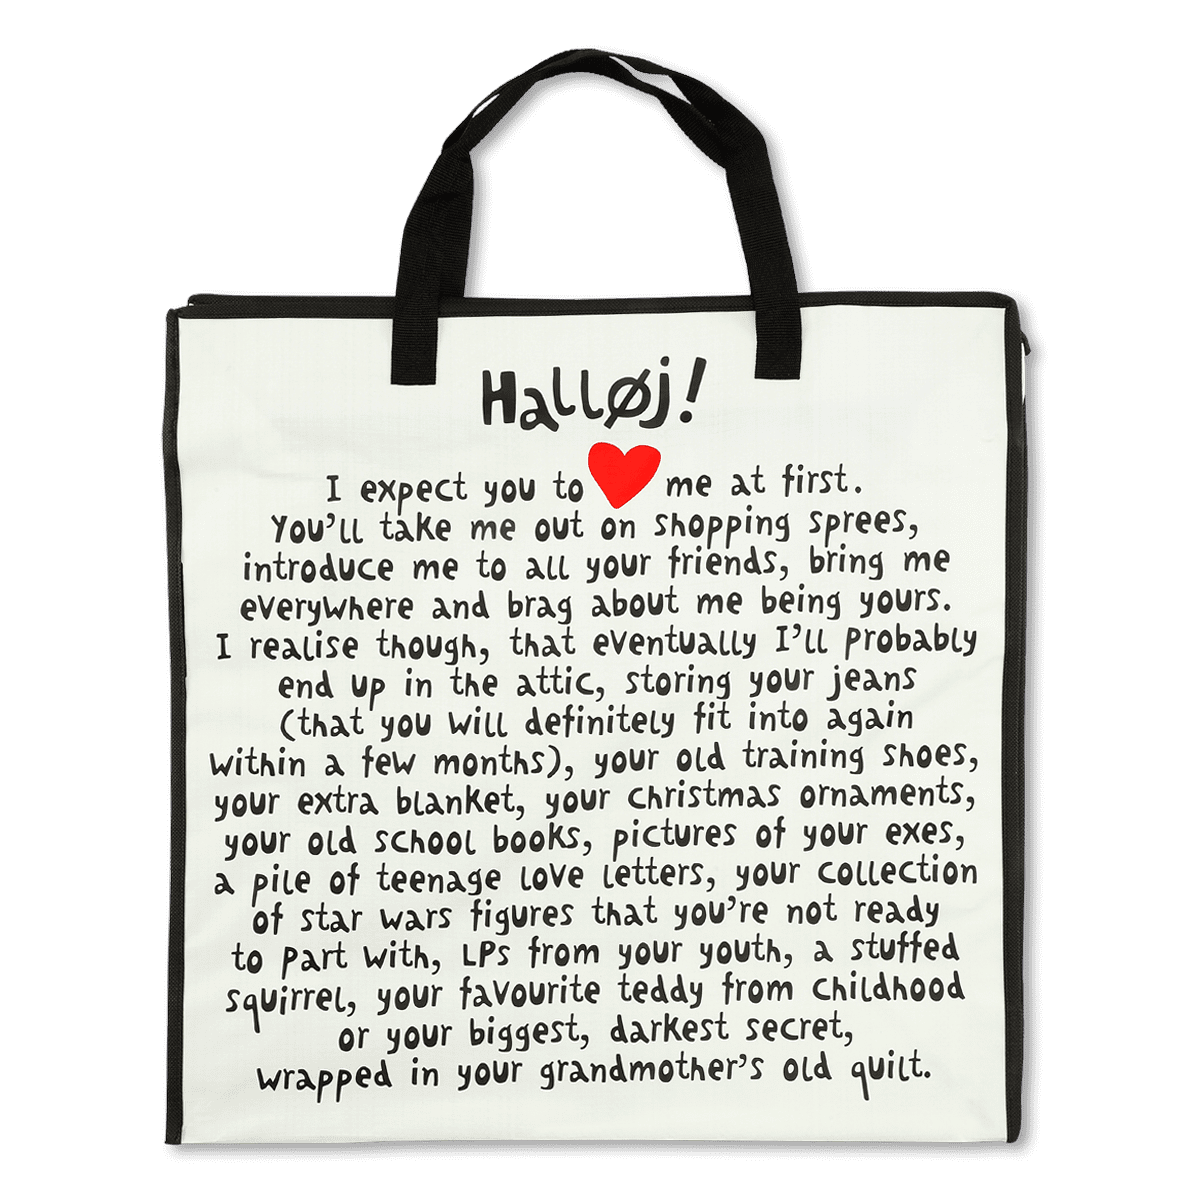 Halløj!
I expect you to ❤ me at first.
You'll take me out on shopping sprees,
introduce me to all your friends, bring me
everywhere and brag about me being yours.
I realise though, that eventually I'll probably
end up in the attic, storing your jeans
(that you will definitely fit into again
within a few months), your old training shoes,
your extra blanket, your christmas ornaments,
your old school books, pictures of your exes,
a pile of teenage love letters, your collection
of star wars figures that you're not ready
to part with, LPs from your youth, a stuffed
squirrel, your favourite teddy from childhood
or your biggest, darkest secret,
wrapped in your grandmother's old quilt.